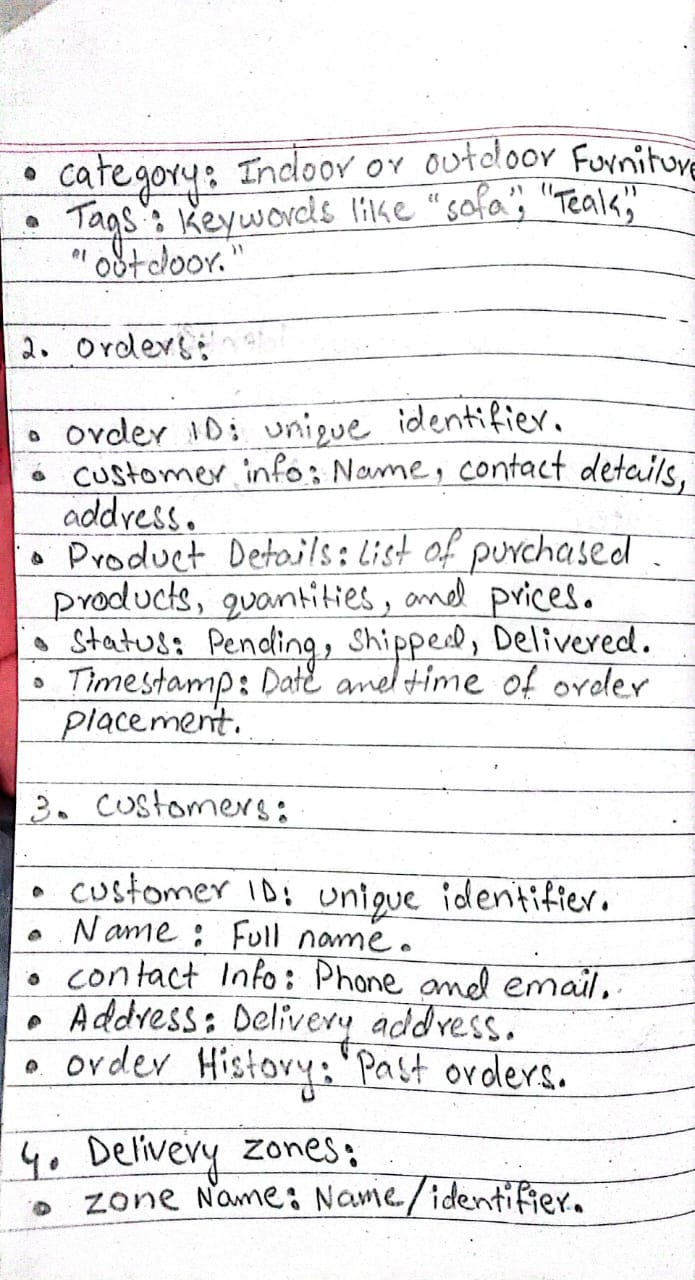 • category: Indoor or outdoor Furniture
• Tags: Keywords like "sofa", "Teak",
"outdoor."
2. orders:
• order ID: unique identifier.
• customer info: Name, contact details,
address.
• Product Details: List of purchased
products, quantities, and prices.
• Status: Pending, Shipped, Delivered.
• Timestamp: Date and time of order
placement.
3. customers:
• customer ID: unique identifier.
• Name: Full name.
• contact Info: Phone and email.
• Address: Delivery address.
• order History: Past orders.
4. Delivery zones:
• zone Name: Name/identifier.